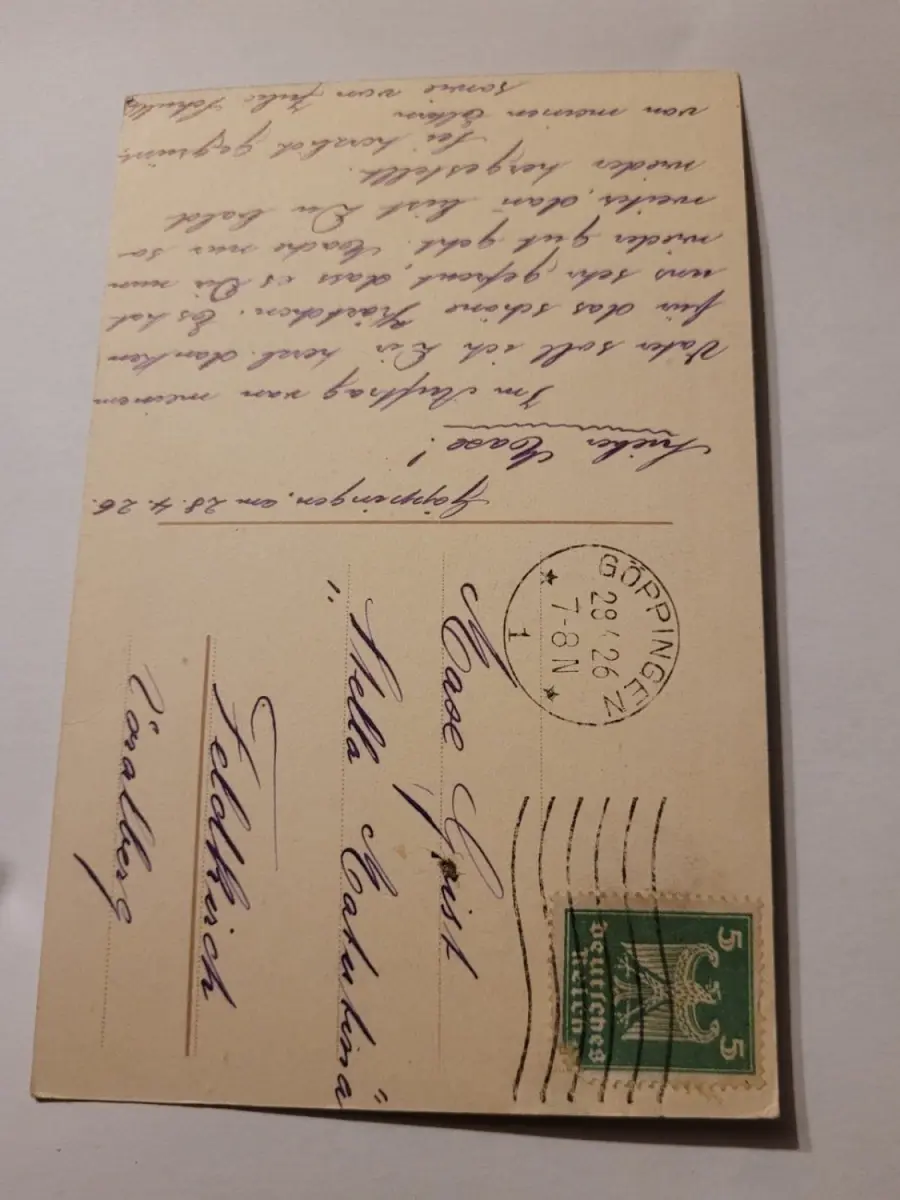 Göppingen, am 28.4.26.
Lieber Mase!
Im Auftrag von meinem
Vater soll ich Dir herzl. danken
für das schöne Kärtchen. Es hat
uns sehr gefreut, dass es Dir nun
wieder gut geht. Mache nur so
weiter, dan bist Du bald
wieder hergestellt.
Sei herzlich gegrüsst,
von meinen Eltern
sowie von Julie
GÖPPINGEN
28 4 26
7-8 N
1
5 5
Deutsches
Reich
Mase Geist
"Stella Matutina"
Feldkirch
Voralberg